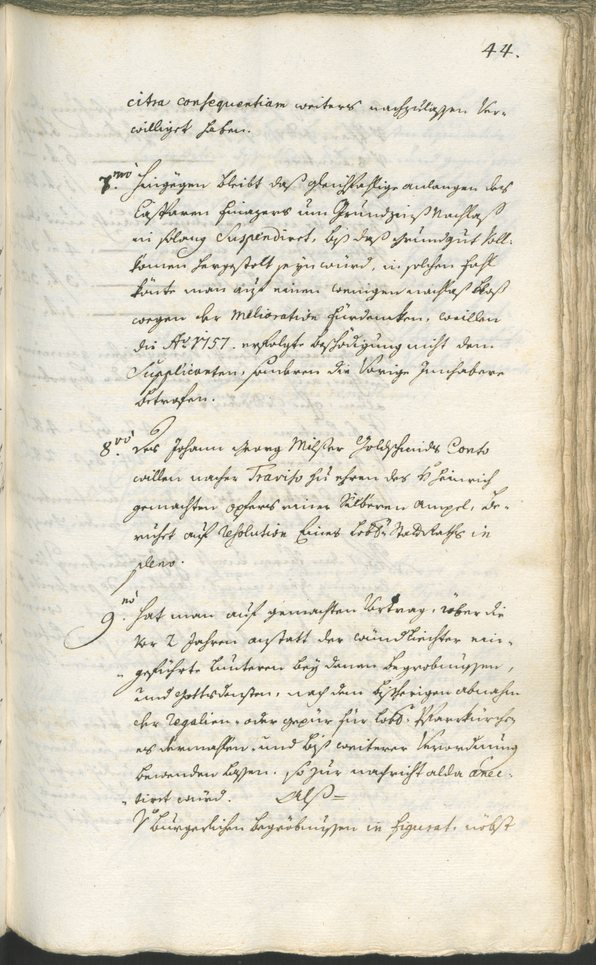 44.
citra consequentiam weiters nachzulassen ver-
williget haben.
7mo Hingegen bleibt daß gleichfahlige anlangen des
Casparen Finazers um Grundzinß Nachlaß
in solang Suspendiert, biß daß Grundgut voll-
komen hergestelt seyn würd, in solchen fahl
könte man auf einen wenigen nachlaß bloß
wegen der Melioration fürdencken, weillen
die Ao 1757. erfolgte beschädigung nicht dem
Supplicanten, sonderen die vorige Innhabere
betrofen.
8vo Des Johann Georg Milster Goldschmids Conto
willen nacher Traviso zu ehren des H: Heinrich
gemachten opfers einer Silberen Ampel, be-
ruhet auf resolution Eines Lobs: StattRaths in
pleno.
9no Hat man auf gemachten Vortrag, über die
vor 2 Jahren anstatt der windliechter ein-
geführte bey denen begröbnussen,
und Gottsdiensten, nach dem bisherigen abnahm
der Regalien, oder gepür für Lobs: Pfarrkürchen
es dermahlen, und biß weiterer Verordnung
bewenden lassen. so zur nachricht alda
tirt würd. Alß=
bürgerlichen begröbnussen in figurat. nöbst